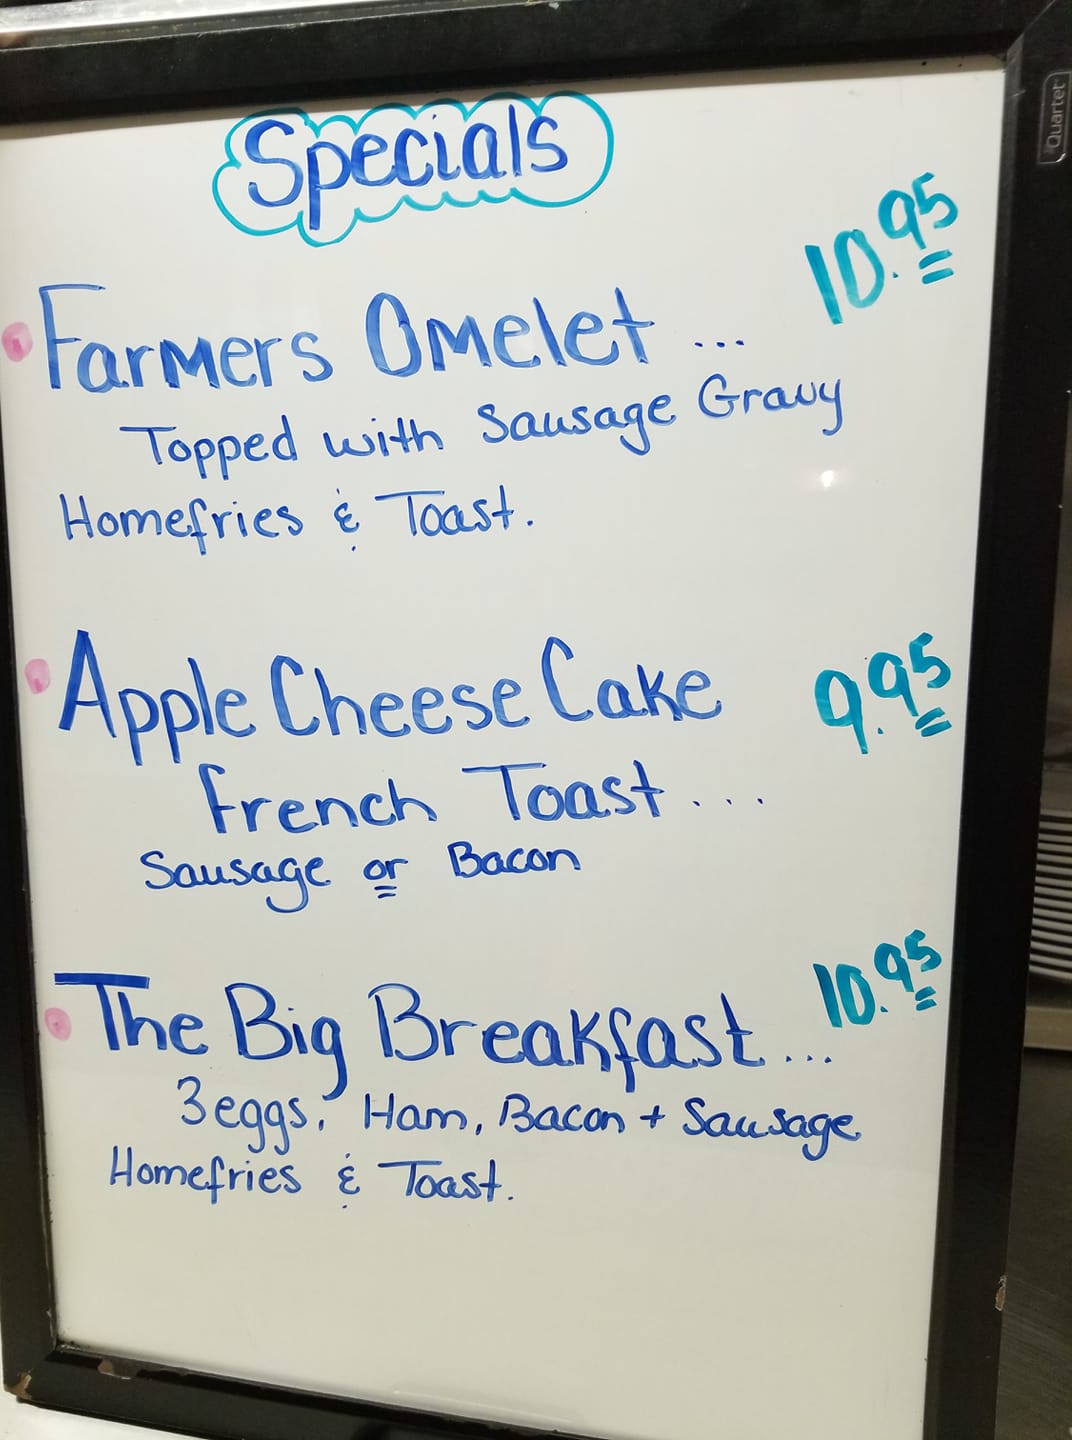 Quartet
Specials
10.95
Farmers Omelet ...
Topped with Sausage Gravy
Homefries & Toast.
Apple Cheese Cake 9.95
French Toast ...
Sausage or Bacon
10.95
The Big Breakfast ...
3 eggs, Ham, Bacon + Sausage
Homefries & Toast.